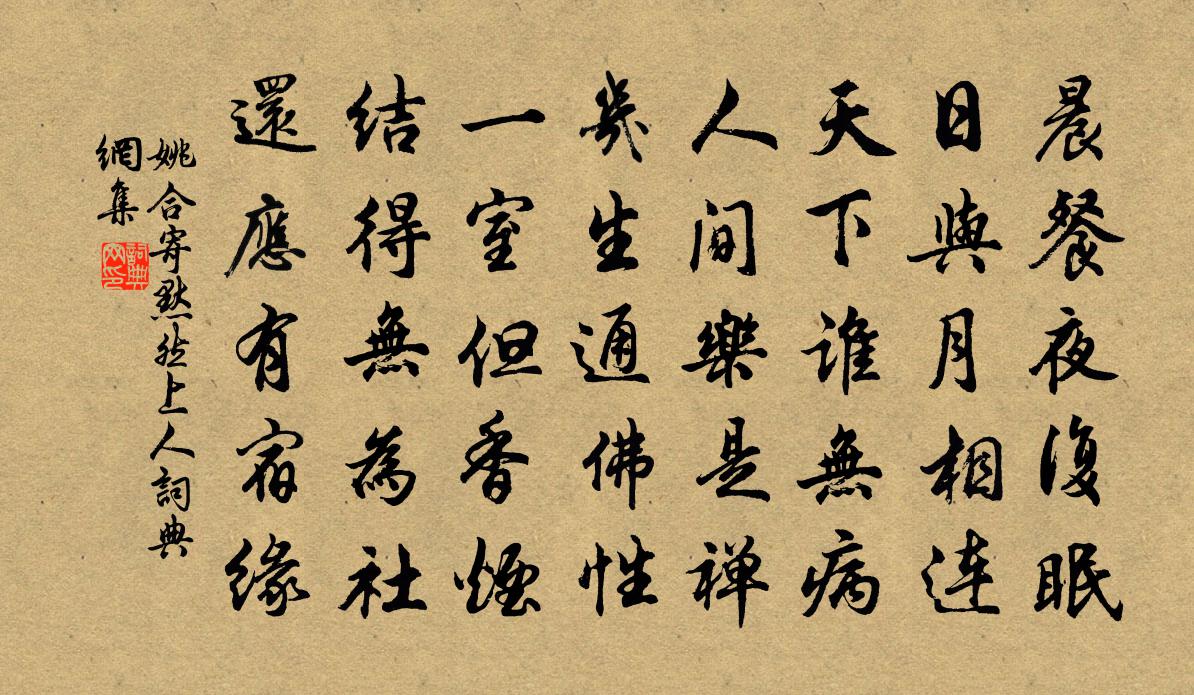 晨餐夜復眠
日與月相連
天下誰無病
人間樂是禅
幾生通佛性
一室但香煙
結得無為社
還應有宿緣
姚合寄默然上人詞典
網集
詞典
网印